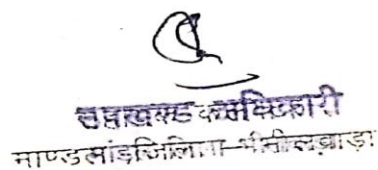 उपखण्ड अधिकारी
माण्डल जिला-भीलवाड़ा